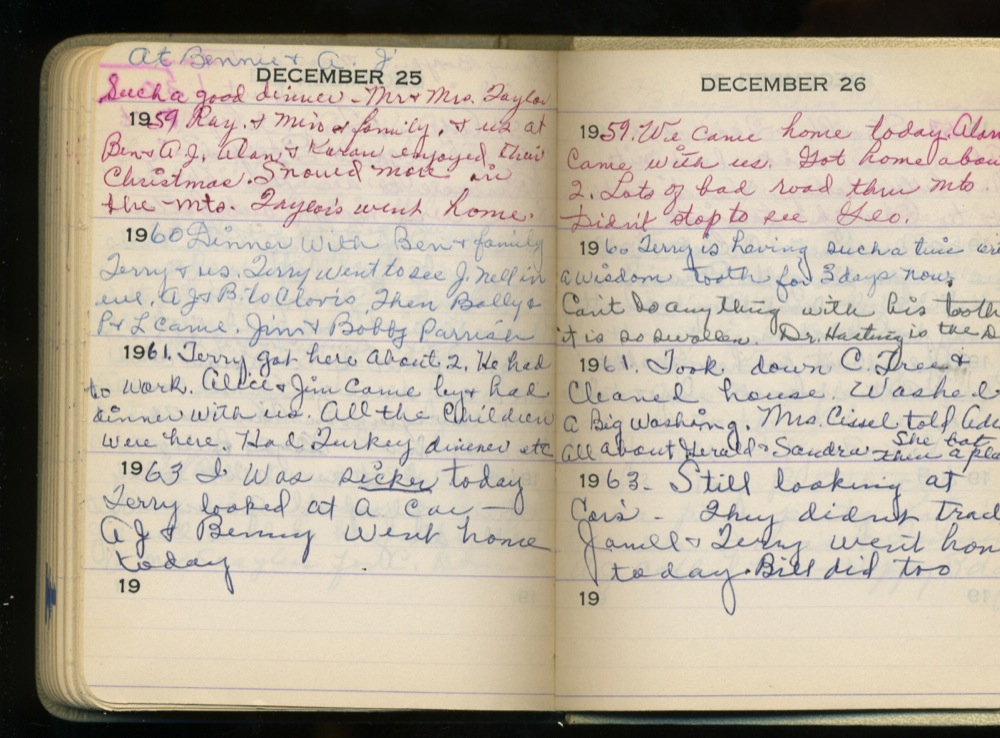 At Bennie & A. J.
DECEMBER 25
Such a good dinner - Mr & Mrs. Taylor
1959 Ray. & Mina & family, & us at
Ben & A J. Alan & Karan enjoyed their
Christmas. Snowed more in
the - mts. Taylors went home.
1960 Dinner With Ben & family
Terry & us. Terry went to see J. Nell in
eve. A J & B. to Clovis, Then Bolly &
P & L came. Jim & Bobby Parrish
1961. Terry got here About 2. He had
to work. Alice & Jim Came by & had
dinner with us. All the Children
were here. Had Turkey dinner etc
1963 I Was sicker today
Terry looked at A Car —
A J & Benny Went home
today
19
DECEMBER 26
1959. We came home today. Alan
Came with us. Got home abou
2. Lots of bad road thru mts.
Didn't stop to see Leo.
1960 Terry is having such a time
a wisdom tooth for 3 days now,
Can't do anything with his tooth
it is so swollen. Dr. is the D
1961. Took down C. Tree &
Cleaned house. Washed
a Big Washing. Mrs. Cissel told
all about Herald & Sandra She
1963 - Still looking at
Cars - They didn't Trad
Janell & Terry went hom
today. Bill did too
19